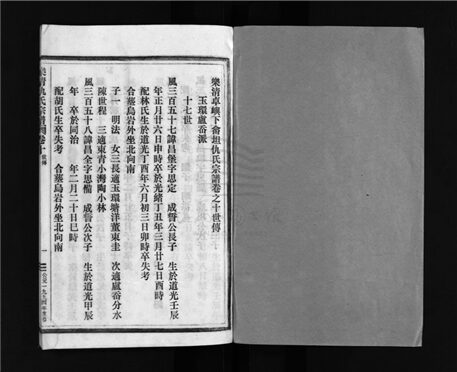 樂清卓嶼下畬坦仇氏宗譜卷之十世傳
玉環盧嶴派
十七世
風三百五十七諱昌堡字思定 成督公長子 生於道光壬辰
年正月廿六日申時卒於光緒丁丑年三月廿七日酉時
配林氏生於道光丁酉年六月初三日卯時卒失考
合葬烏岩外坐北向南
子一 明法 女三長適玉環塘洋董東圭 次適盧嶴分水
陳世程 三適東青小灣陶小林
風三百五十八諱昌全字思備 成督公次子 生於道光甲辰
年 卒於同治 年二月二十日巳時
配胡氏生卒失考 合葬烏岩外坐北向南
樂清仇氏宗譜 卷十 世傳
一
公元一九九四年重修